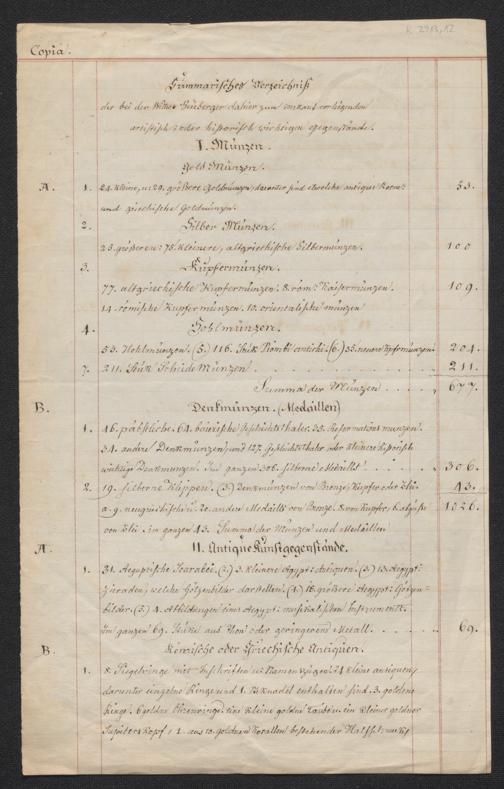 K 2913,12
Copia.
Summarisches Verzeichniß
der bei der Witwe dahier zum vorliegenden
artistisch oder historisch wichtigen Gegenstände.
I. Münzen.
Gold Münzen.
A. 1. 24. kleine, u. 29. größere Goldmünzen, darunter sind etwelche antique Röm: 53.
und griechische Goldmünzen.
2. Silber Münzen.
25. größere u. 75. kleinere, altgriechische Silbermünzen. 100
3. Kupfermünzen.
77. altgriechische Kupfermünzen. 8. röm: Kaisermünzen. 109.
14. römische Kupfermünzen. 10. orientalische münzen
4. Hohlmünzen.
53. Hohlmünzen. (5.) 116. Stük Piombi antichi. (6.) 35. neuere Kpfermünzen 204.
7. 211. Stük Scheide Münzen 211.
Summa der Münzen 677.
B. Denkmünzen. (Medaillen)
1. 46. päbstliche. 64. bairische Geschichtsthaler. 35. Reformations münzen.
34. andere Denkmünzen, und 127. Geschichtsthaler oder kleinere historisch
wichtige Denkmünzen. Im ganzen 306. silberne Medaills. 306.
2. 19. silberne Klippen. (3.) Denkmünzen von Bronze, Kupfer oder Blei 43.
a. 9. neugriechische u. 20. andere Medaills von Bronze. 8. von Kupfer, 6. abgüsse 1026.
von Blei. im ganzen 43. Summa der Münzen und Medaillen
A. II. Antique Kunstgegenstände.
1. 31. Aegyptische Scarabei. (2.) 3. kleinere Aegypt: Antiquen. (3.) 13. Aegypt:
Zieraden, welche Götzenbilder darstellen. (4.) 18. größere Aegypt: Götzen-
bilder. (5.) 4. Abbildungen eines Aegypt: musikalischen Instruments.
Im ganzen 69. Stüke aus Thon oder geringerem Metall. 69.
B. Römische oder Griechische Antiquen.
1. 8. Siegelringe mit Inschriften u. Namenszügen. 24 kleine antiquen,
darunter einzelne Ringe und 1. Paknadel enthalten sind. 3. goldene
Ringe. 6 goldene Ohrenringe. eine kleine goldene Taube. ein kleiner goldner
Jupiters Kopf, 1. aus 10. goldnen Korallen bestehender Halsschmuck